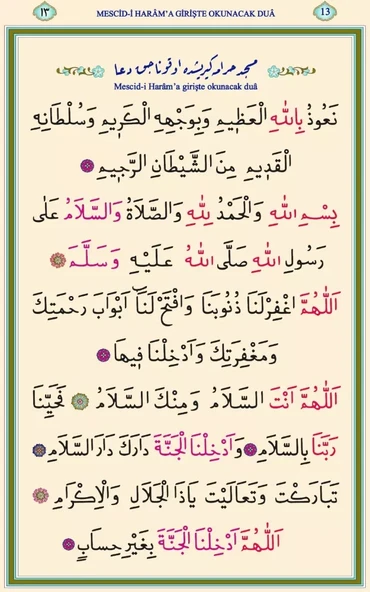 ١٣ MESCİD-İ HARÂM’A GİRİŞTE OKUNACAK DUÂ 13
مسجد حرامه كيريشده اوقوناجق دعا
Mescid-i Harâm’a girişte okunacak duâ
نَعُوذُ بِاللّٰهِ الْعَظِيمِ وَبِوَجْهِهِ الْكَرِيمِ وَسُلْطَانِهِ
الْقَدِيمِ مِنَ الشَّيْطَانِ الرَّجِيمِ
بِسْمِ اللّٰهِ وَالْحَمْدُ لِلّٰهِ وَالصَّلَاةُ وَالسَّلَامُ عَلٰى
رَسُولِ اللّٰهِ صَلَّى اللّٰهُ عَلَيْهِ وَسَلَّمَ
اَللّٰهُمَّ اغْفِرْلَنَا ذُنُوبَنَا وَافْتَحْ لَنَا اَبْوَابَ رَحْمَتِكَ
وَمَغْفِرَتِكَ وَاَدْخِلْنَا فِيهَا
اَللّٰهُمَّ اَنْتَ السَّلَامُ وَمِنْكَ السَّلَامُ فَحَيِّنَا
رَبَّنَا بِالسَّلَامِ وَاَدْخِلْنَا الْجَنَّةَ دَارَكَ دَارَ السَّلَامِ
تَبَارَكْتَ وَتَعَالَيْتَ يَاذَا الْجَلَالِ وَالْاِكْرَامِ
اَللّٰهُمَّ اَدْخِلْنَا الْجَنَّةَ بِغَيْرِ حِسَابٍ